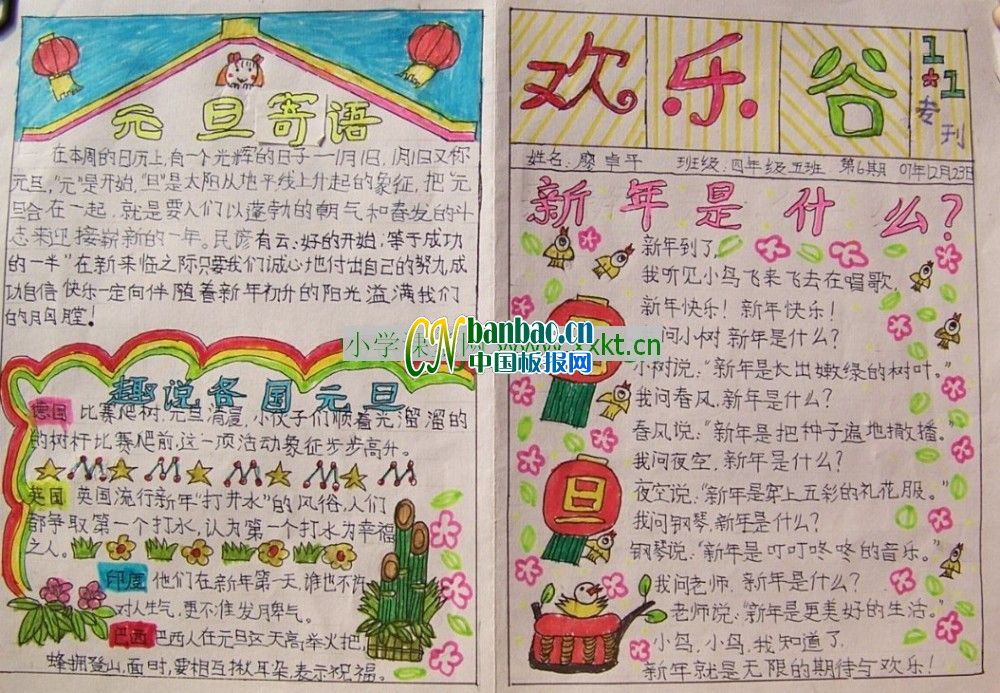 元旦寄语
在本周的日历上,有一个光辉的日子——1月1日,1月1日又称
元旦,"元"是开始,"旦"是太阳从地平线上升起的象征,把"元
旦合在一起,就是要人们以蓬勃的朝气和奋发的斗
志来迎接崭新的一年。民谚有云:好的开始,等于成功
的一半"在新来临之际只要我们诚心地付出自己的努力,成
功自信快乐一定向伴随着新年初升的阳光溢满我们
的胸膛!
趣说各国元旦
德国 比赛爬树:元旦清晨,小伙子们顺着光溜溜的
的树杆比赛爬前,这一项活动象征步步高升。
英国 英国流行新年"打井水"的风俗,人们
都争取第一个打水,认为第一个打水为幸福
之人。
印度 他们在新年第一天,谁也不许
对人生气,更不准发月脾气。
巴西 巴西人在元旦这天高举火把,
蜂拥登山,面时,要相互揪耳朵,表示祝福。
欢乐谷
1·1
专刊
姓名:廖卓平 班级:四年级五班 第6期 07年12月23日
新年是什么?
新年到了
我听见小鸟飞来飞去在唱歌,
新年快乐!新年快乐!
问小树 新年是什么?
小树说:"新年是长出嫩绿的树叶。"
我问春风,新年是什么?
春风说:"新年是把种子遍地撒播。"
我问夜空,新年是什么?
夜空说:"新年是穿上五彩的礼花服。"
我问钢琴,新年是什么?
钢琴说:"新年是叮叮咚咚的音乐。"
我问老师,新年是什么?
老师说:"新年是更美好的生活。"
小鸟,小鸟,我知道了
新年就是无限的期待与欢乐!
旦
CN banbao.cn
中国板报网
小学课
xkt.cn